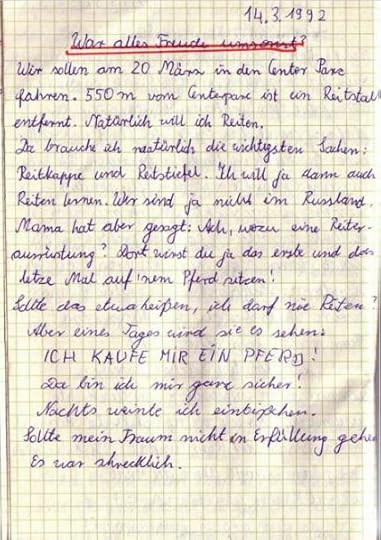 14.3.1992
War alles Freude umsonst?
Wir sollen am 20 März in den Center Parc
fahren. 550 m vom Centerparc ist ein Reitstall
entfernt. Natürlich will ich Reiten.
Da brauche ich naatürlich die wichtigsten Sachen:
Reitkappe und Reitstiefel. Ich will ja dann auch
Reiten lernen. Wir sind ja nicht im Russland.
Mama hat aber gesagt: Ach, wozu eine Reiter-
ausrüstung? Dort wirst du ja das erste und das
letze Mal auf 'nem Pferd sitzen!
Sollte das etwa heißen, ich darf nie Reiten?
Aber eines Tages wird sie es sehen:
ICH KAUFE MIR EIN PFERD!
Da bin ich mir ganz sicher!
Nachts weinte ich ein bißchen.
Sollte mein Traum nicht in Erfüllung gehen
Es war schrecklich.